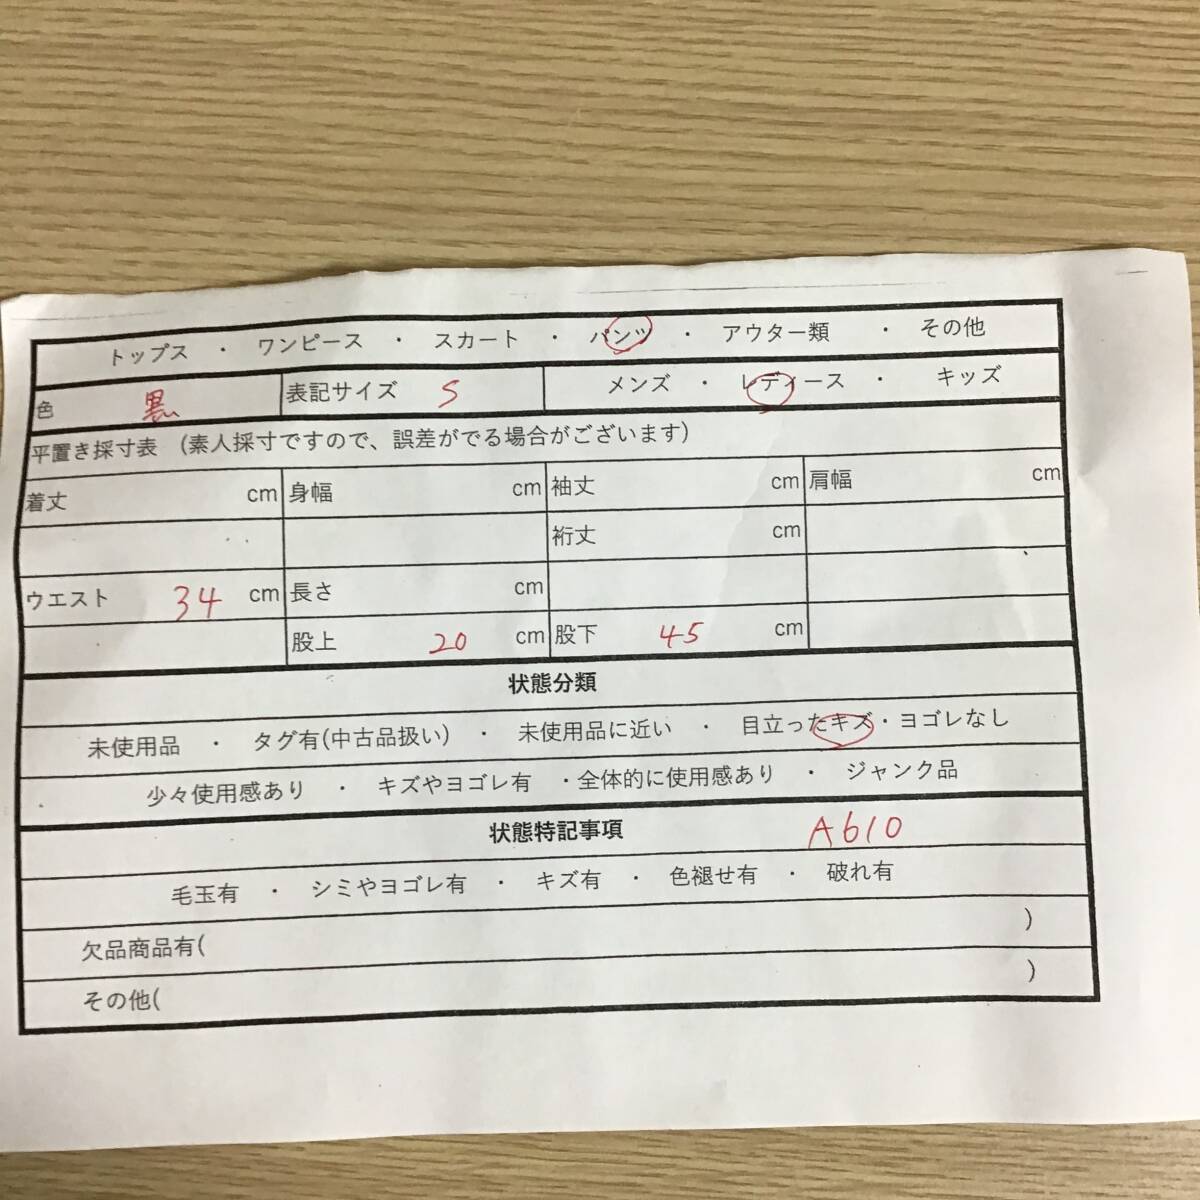 トップス ・ ワンピース ・ スカート ・ パンツ ・ アウター類 ・ その他
色 黒 表記サイズ S メンズ ・ レディース ・ キッズ
平置き採寸表 (素人採寸ですので、誤差がでる場合がございます)
着丈 cm 身幅 cm 袖丈 cm 肩幅 cm
裄丈 cm
ウエスト 34 cm 長さ cm
股上 20 cm 股下 45 cm
状態分類
未使用品 ・ タグ有(中古品扱い) ・ 未使用品に近い ・ 目立ったキズ・ヨゴレなし
少々使用感あり ・ キズやヨゴレ有 ・全体的に使用感あり ・ ジャンク品
状態特記事項 A610
毛玉有 ・ シミやヨゴレ有 ・ キズ有 ・ 色褪せ有 ・ 破れ有
欠品商品有( )
その他( )